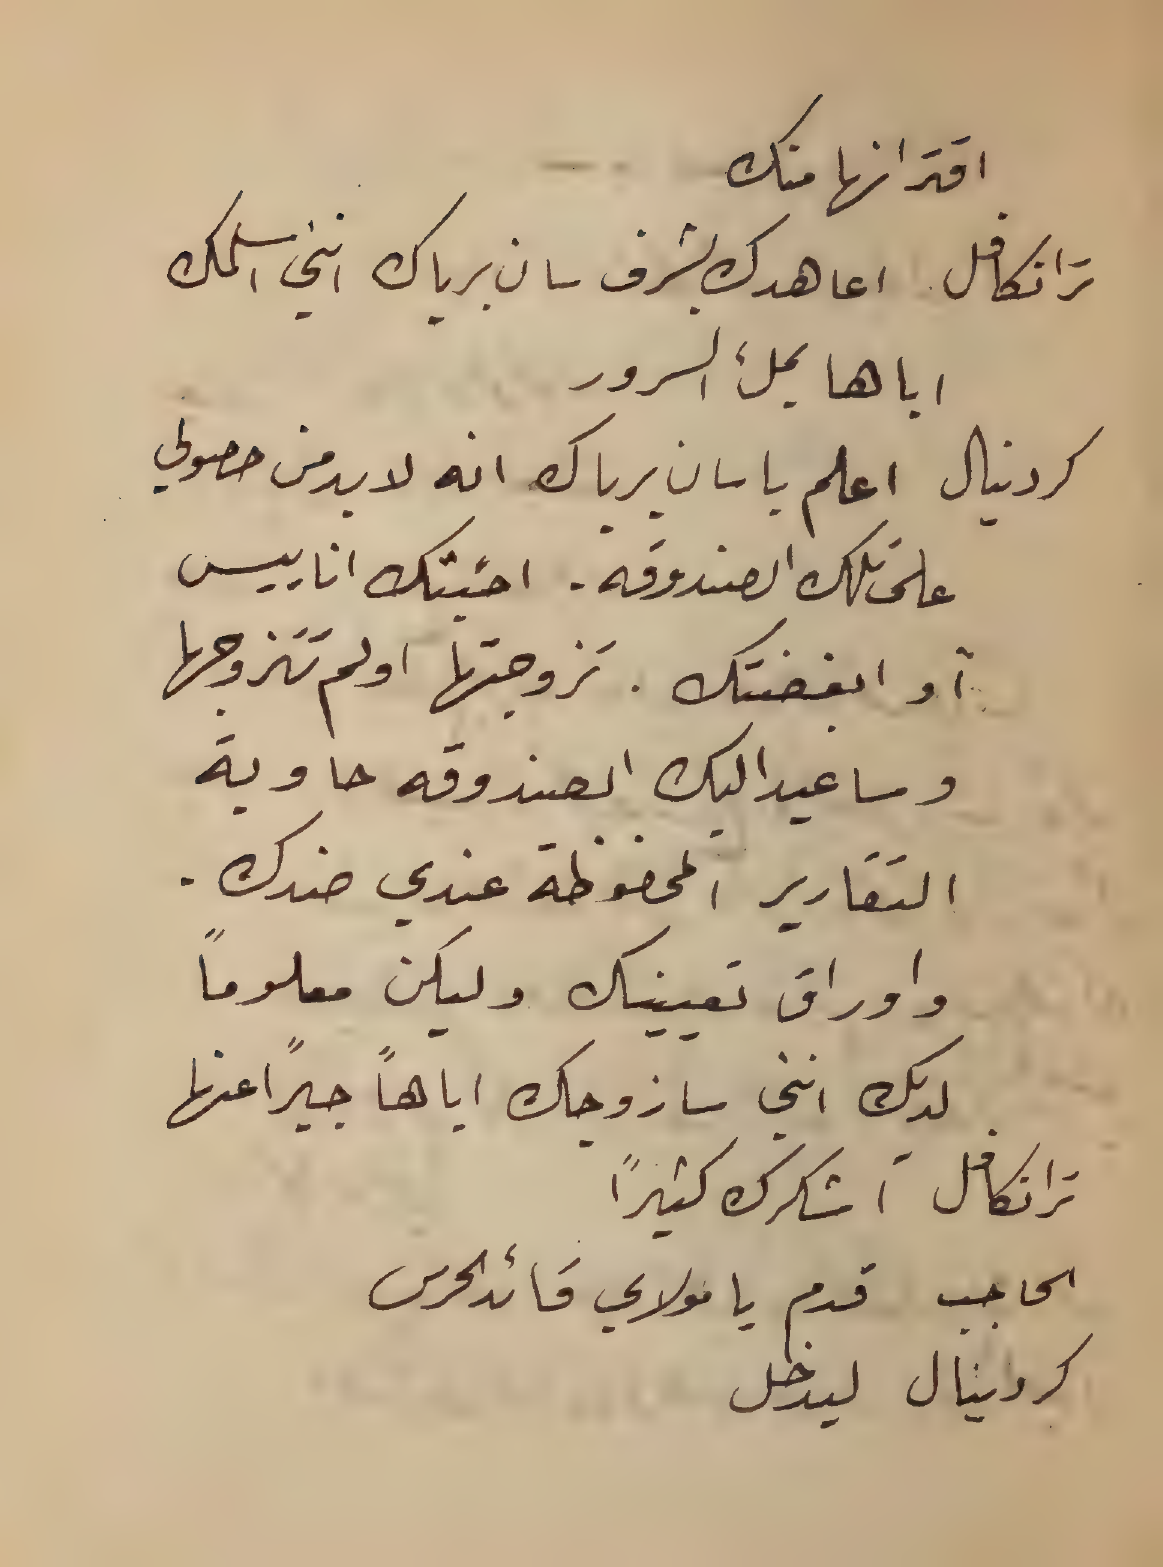 اقترانها منك
ترانكافل اعاهدك بشرف سان برياك انني اسلمك
اياها بملئ السرور
كردينال اعلم يا سان برياك انه لا بد من حصولي
على تلك الصندوقه. احبتك انا بيس
أو ابغضتك. تزوجتها او لم تتزوجها
وساعيد اليك الصندوقه حاوية
التقارير المحفوظة عندي ضدك.
واوراق تعيينك وليكن معلوماً
لديك انني سازوجك اياهاً جبراً عنها
ترانكافل أشكرك كثيراً
الحاجب قدم يا مولاي قائد الحرس
كردينال ليدخل